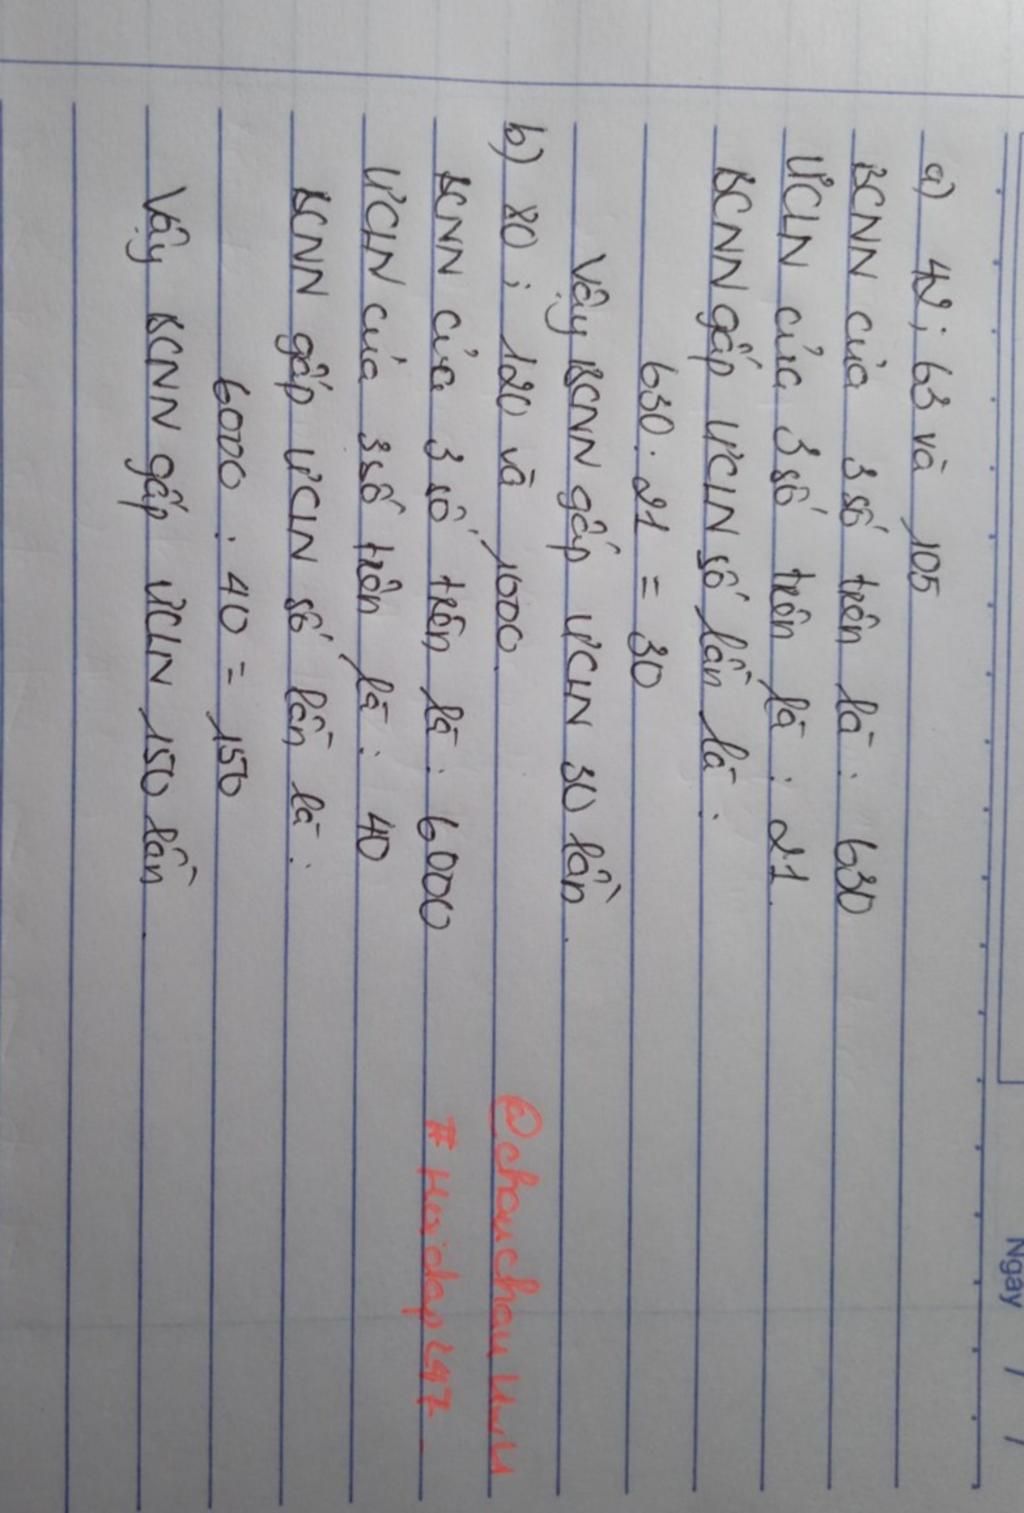 Ngay / /
a) 42 ; 63 và 105
BCNN của 3 số trên là : 630
ƯCLN của 3 số trên là : 21.
BCNN gấp ƯCLN số lần là :
630 : 21 = 30
Vậy BCNN gấp ƯCLN 30 lần.
b) 80 ; 120 và 1000.
BCNN của 3 số trên là : 6000
ƯCLN của 3 số trên là : 40
BCNN gấp ƯCLN số lần là :
6000 : 40 = 150
Vậy BCNN gấp ƯCLN 150 lần.
# Hoidap247